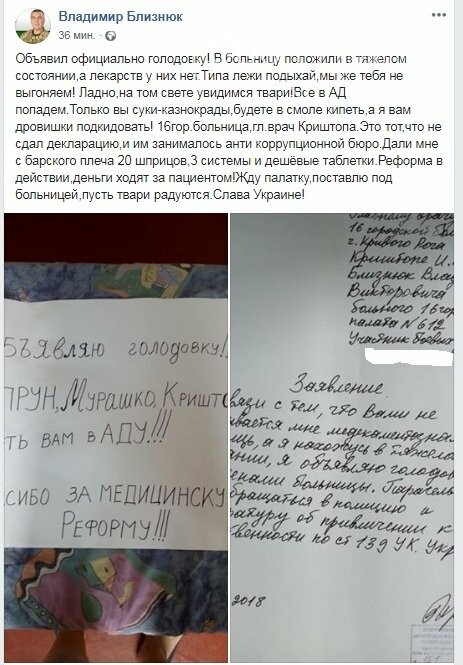 Владимир Близнюк
36 мин.
Объявил официально голодовку! В больницу положили в тяжелом
состоянии,а лекарств у них нет.Типа лежи подыхай,мы же тебя не
выгоняем! Ладно,на том свете увидимся твари!Все в АД
попадем.Только вы суки-казнокрады,будете в смоле кипеть,а я вам
дровишки подкидовать! 16гор.больница,гл.врач Криштопа.Это тот,что не
сдал декларацию,и им занималось анти коррупционной бюро.Дали мне
с барского плеча 20 шприцов,3 системы и дешёвые таблетки.Реформа в
действии,деньги ходят за пациентом!Жду палатку,поставлю под
больницей,пусть твари радуются.Слава Украине!
БЪЯВЛЯЮ ГОЛОДОВКУ!!
ПРУН, МУРАШКО, КРИШТ
ТЬ ВАМ В АДУ!!!
СИБО ЗА МЕДИЦИНСКУ
РЕФОРМУ!!!
16 городской
г. Кривого Рога
Криштопе И.
Близнюк Влад
Викторовича
больного 16 гор
палата №612
Участник боевых
Заявление
вязи с тем, что Вами не
вается мне медекаментозна
щь, а я нахожусь в тяжело
нии, я объявляю голодов
енами больницы. Паралель
бращаться в полицию и
ратуру об привличении к
твенности по ст 139 УК. Укр
2018